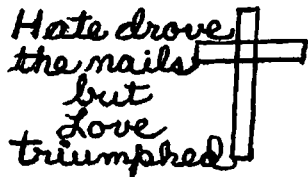 Hate drove
the nails
but
Love
triumphed